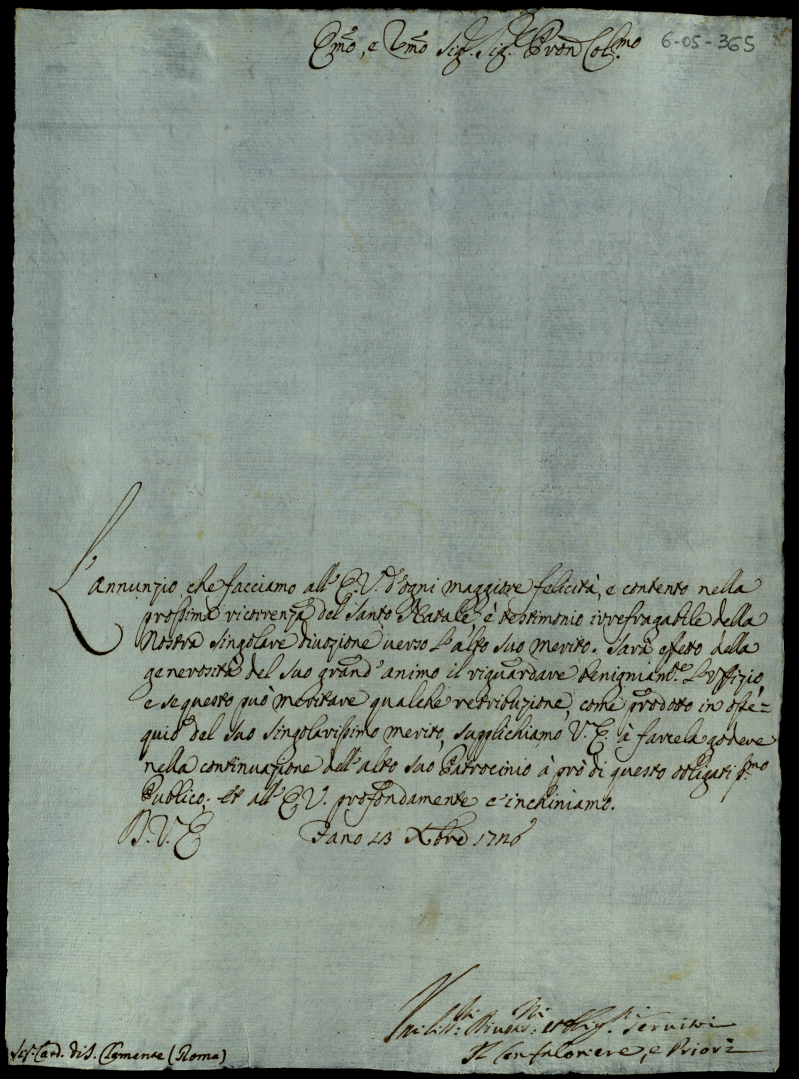 Emo, e Rmo Sig. Sig. Pron Col.mo 6-05-365
L'annunzio, che facciamo all'E.V. d'ogni maggiore felicità, e contento nella
prossima ricorrenza del Santo Natale, è testimonio irrefragabile della
Nostra singolare divozione verso l'alto suo merito. Sarà effetto della
generosità del suo grand'animo il riguardare benigniam.te l'Uffizio,
e se questo può meritare qualche retribuzione, come prodotto in osse=
quio del suo singolarissimo merito, supplichiamo V.E. à farcela godere
nella continuazione dell'alto suo Patrocinio à prò di questo obligatiss.mo
Publico; et all'E.V. profondamente c'inchiniamo.
D.V.E Fano 13 Xbre 1726
Divot.mi et Oblig.mi Servitori
Il Confaloniere, e Priori
Sig.r Card. di S. Clemente (Roma)